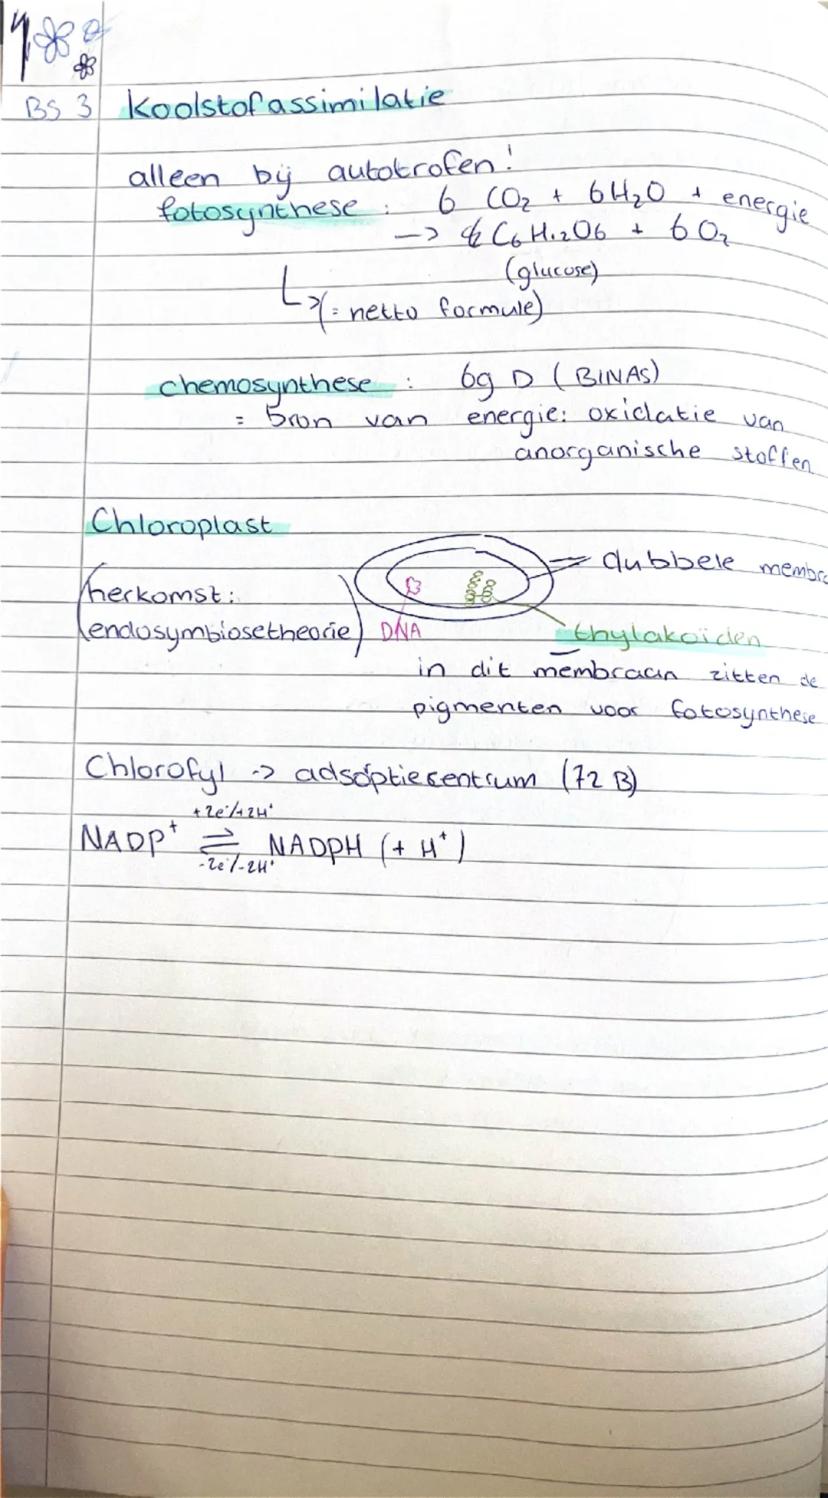 BS 3 Koolstofassimilatie
alleen bij autotrofen!
fotosynthese : 6 CO₂ + 6H₂O + energie
-> C₆H₁₂O₆ + 6O₂
(glucose)
(= netto formule)
chemosynthese : 69 D (BINAS)
= bron van energie: oxidatie van
anorganische stoffen
Chloroplast
dubbele membra
(herkomst:
endosymbiosetheorie) DNA
thylakoïden
in dit membraan zitten de
pigmenten voor fotosynthese
Chlorofyl -> adsoptiecentrum (72 B)
+2e⁻/+2H⁺
NADP⁺ ⇌ NADPH (+ H⁺)
-2e⁻/-2H⁺